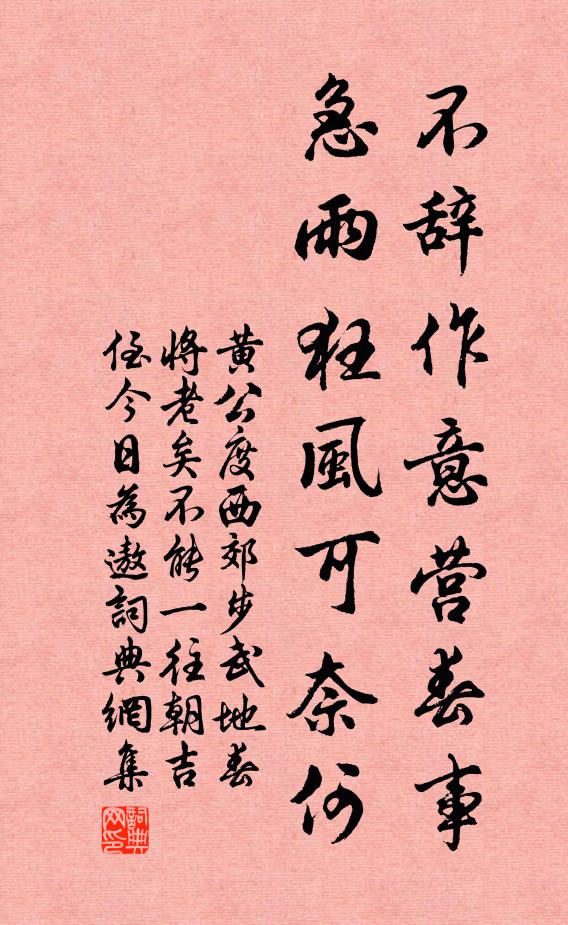 不辞作意营春事
急雨狂風可奈何
黄公度西郊步武地春
将老矣不能一往朝吉
侄今日為遨詞典網集
詞典网印